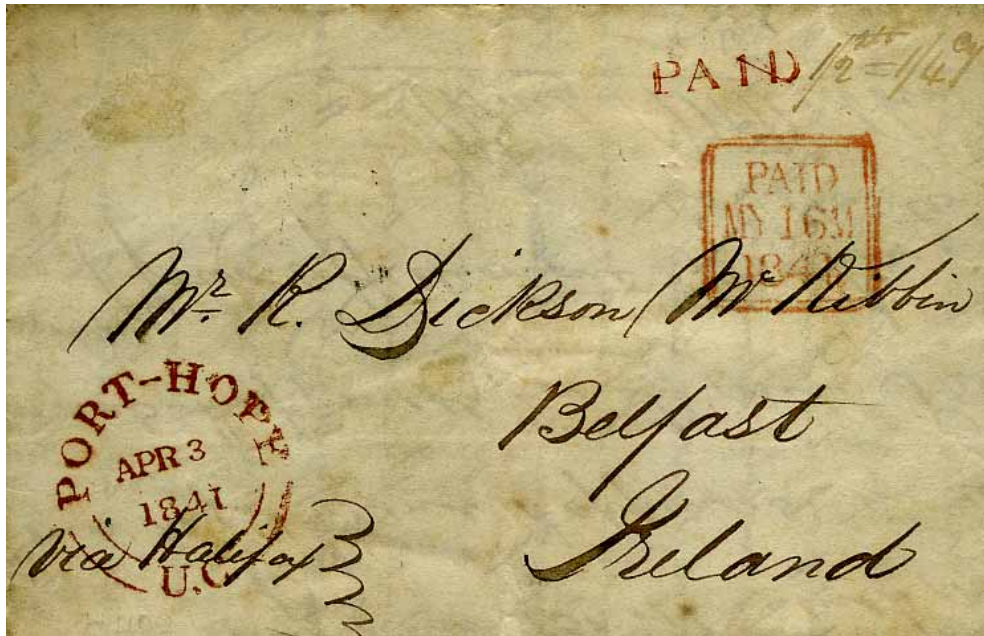 PAID 1/2 stg = 1/4 cy
PAID
MY 16 M
1841
Mr. R. Dickson Mc Kibbin
Belfast
Ireland
PORT-HOPE
APR 3
1841
U.C
via Halifax